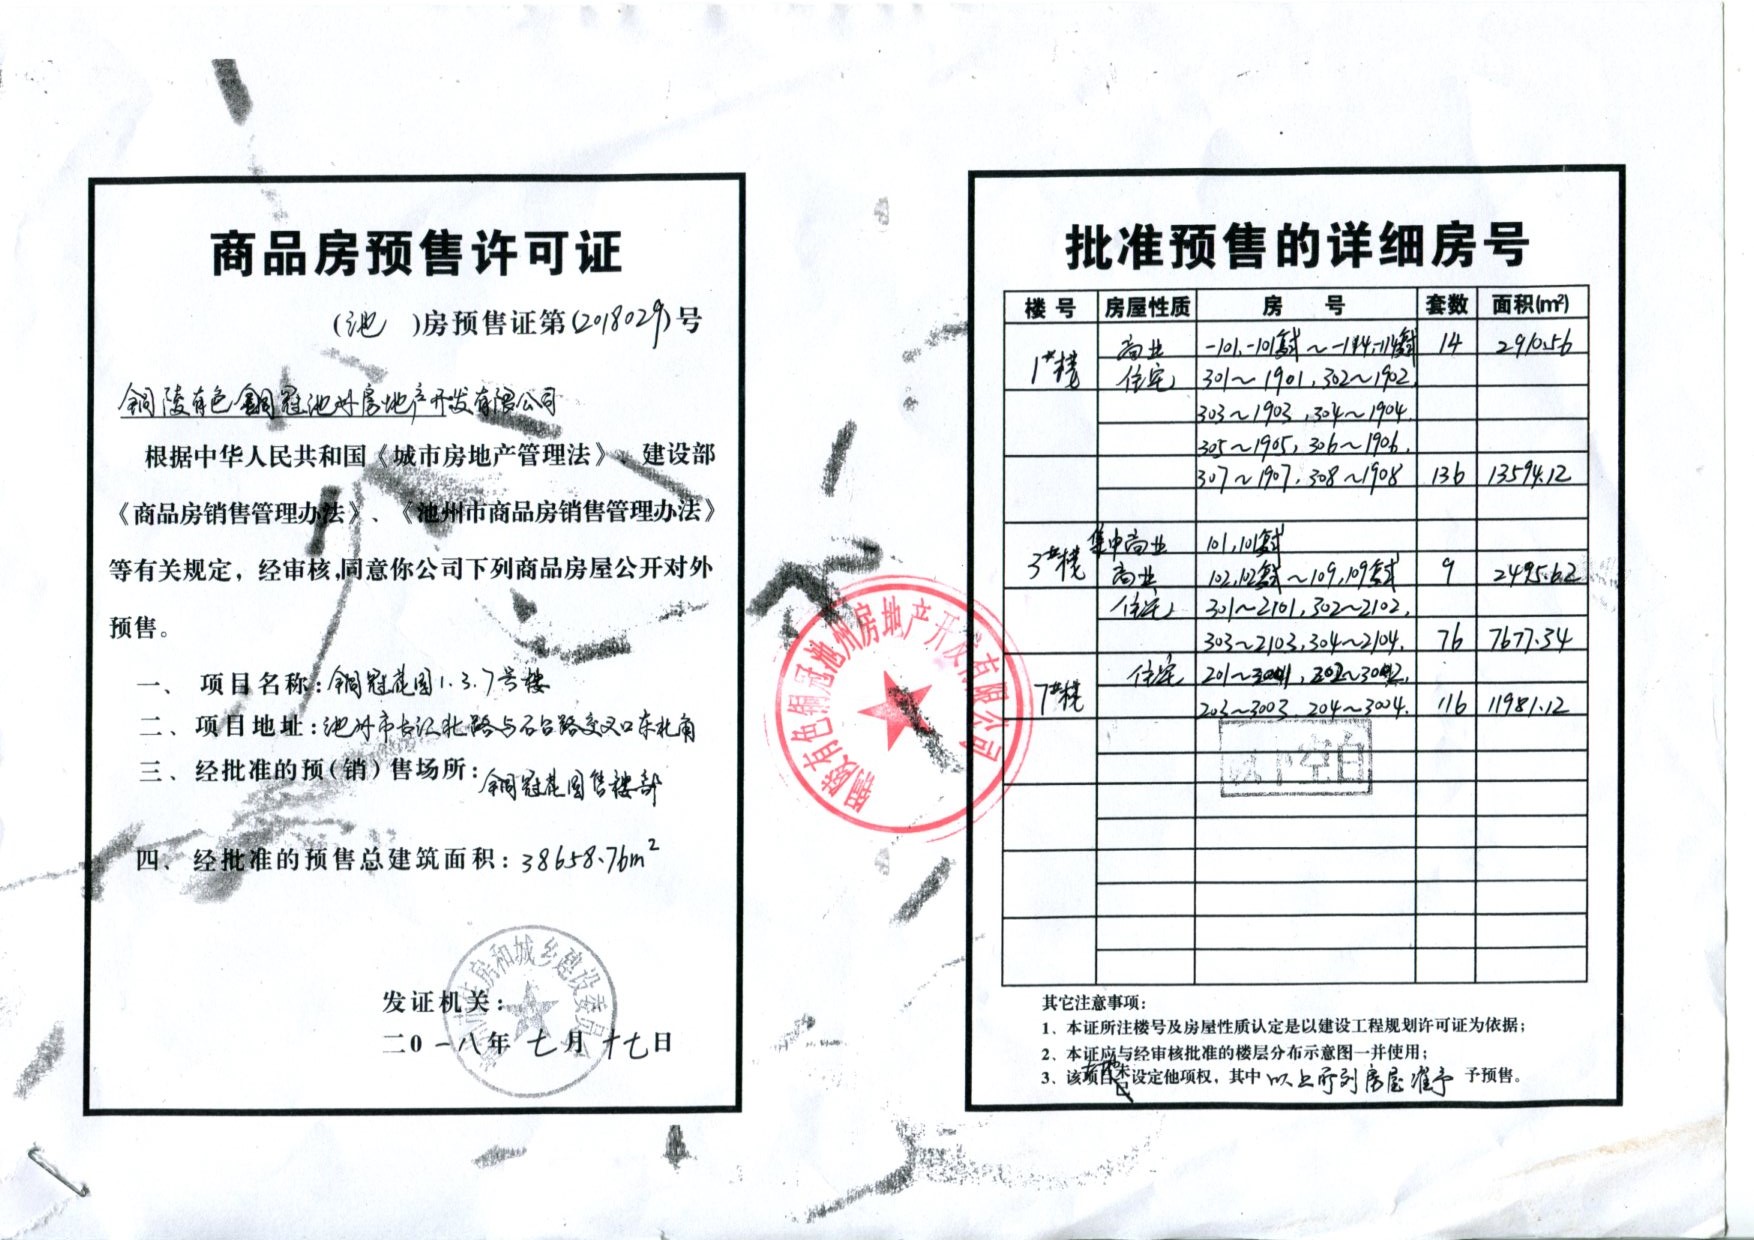 商品房预售许可证
(池 )房预售证第(2018029)号
铜陵有色铜冠池州房地产开发有限公司
根据中华人民共和国《城市房地产管理法》、建设部
《商品房销售管理办法》、《池州市商品房销售管理办法》
等有关规定，经审核,同意你公司下列商品房屋公开对外
预售。
一、 项目名称:铜冠花园1.3.7号楼
二、项目地址:池州市长江北路与石台路交叉口东北角
三、经批准的预(销)售场所:铜冠花园售楼部
四、经批准的预售总建筑面积:38658.76m²
房和城乡建设委员
发证机关:
二0一八年七月十七日
铜陵有色铜冠池州房地产开发有限公司
批准预售的详细房号
楼号 房屋性质 房 号 套数 面积(m²)
1#楼 商业 -101,-101复式~-114,-114复式 14 2910.56
住宅 301~1901,302~1902,
303~1903,304~1904.
305~1905,306~1906.
307~1907,308~1908 136 13594.12
3#楼 集中商业 101,101复式
商业 102,102复式~109,109复式 9 2495.62
住宅 301~2101,302~2102,
303~2103,304~2104. 76 7677.34
7#楼 住宅 201~3001,202~3002,
203~3003 204~3004. 116 11981.12
以下空白
其它注意事项:
1、本证所注楼号及房屋性质认定是以建设工程规划许可证为依据;
2、本证应与经审核批准的楼层分布示意图一并使用;
3、该项目 设定他项权，其中 以上所列房屋准予 予预售。